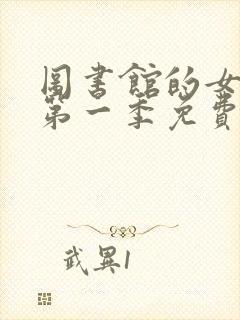 圖書館的女
第一季免費
武異1